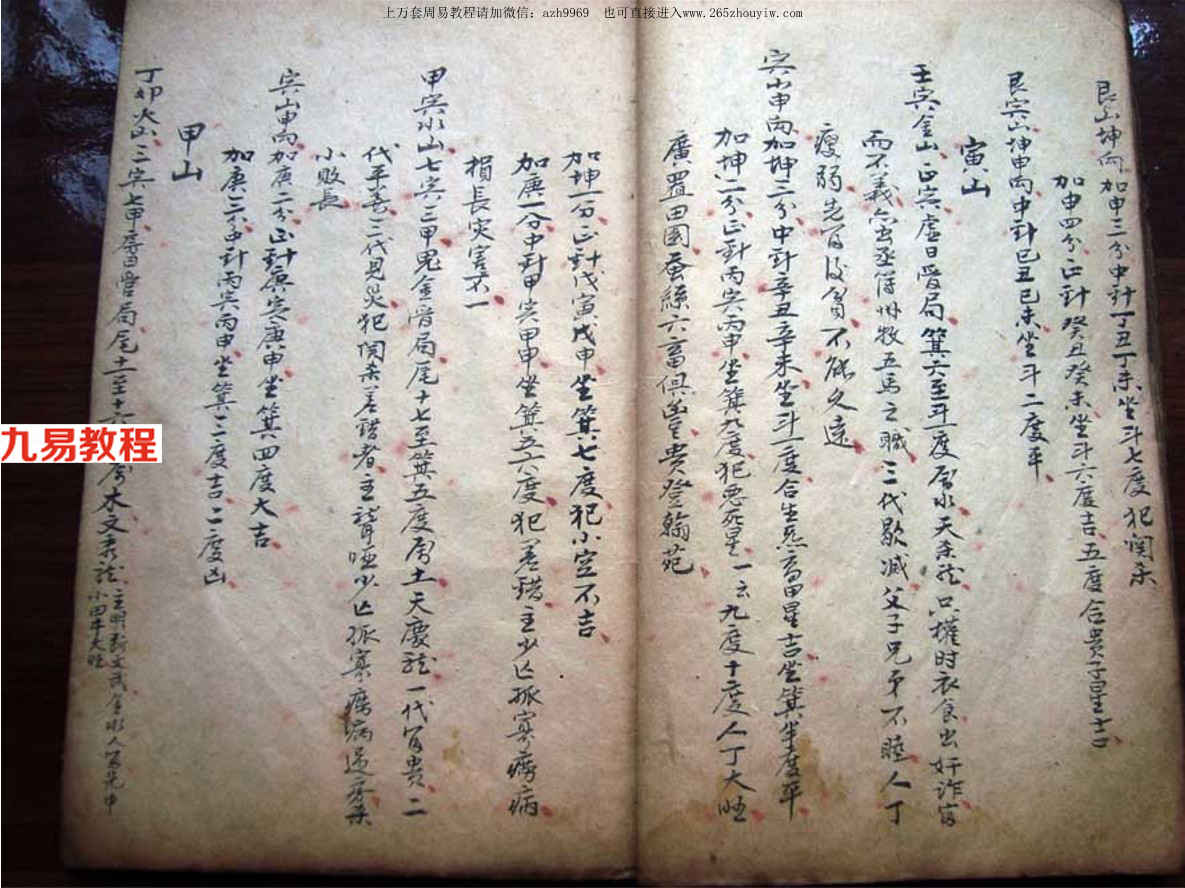 上万套周易教程请加微信：azh9969 也可直接进入www.265zhouyiw.com
艮山坤向加申三分中針丁丑丁未坐斗七度犯関杀
加申四分正針癸丑癸未坐斗六度吉五度合贵子星吉
艮寅山坤申向中針己丑己未坐斗二度平
寅山
壬寅金山正寅虚日管局箕六至斗一度属水天杀龙只權时衣食出奸诈富
而不義禽丞得州牧五馬之職三代歇减父子兄弟不睦人丁
瘦弱先富後貧不能久遠
寅山申向加坤三分中針辛丑辛未坐斗一度合生炁富甲星吉坐箕半度平
加坤二分正針丙寅丙申坐箕九度犯悪死星一云九度十度人丁大旺
廣置田園蚕絲六畜俱盛貴登翰苑
加坤一分正針戊寅戊申坐箕七度犯小空不吉
加庚一分中針甲寅甲申坐箕五六度犯差錯主少亡孤寡痨病
損長灾害不一
甲寅水山七寅三甲鬼金管局尾十七至箕五度属土天慶龙一代富贵二
代平卷三代見灾犯関杀差錯者主聾啞少亡孤寡痨病
小敗長
寅山申向加庚二分正針庚寅庚申坐箕四度大吉
加庚三分中針丙寅丙申坐箕三度吉二度凶
甲山
丁卯火山三寅七甲 管局尾十一至十六 属木文秀龙
小田牛大旺
九易教程